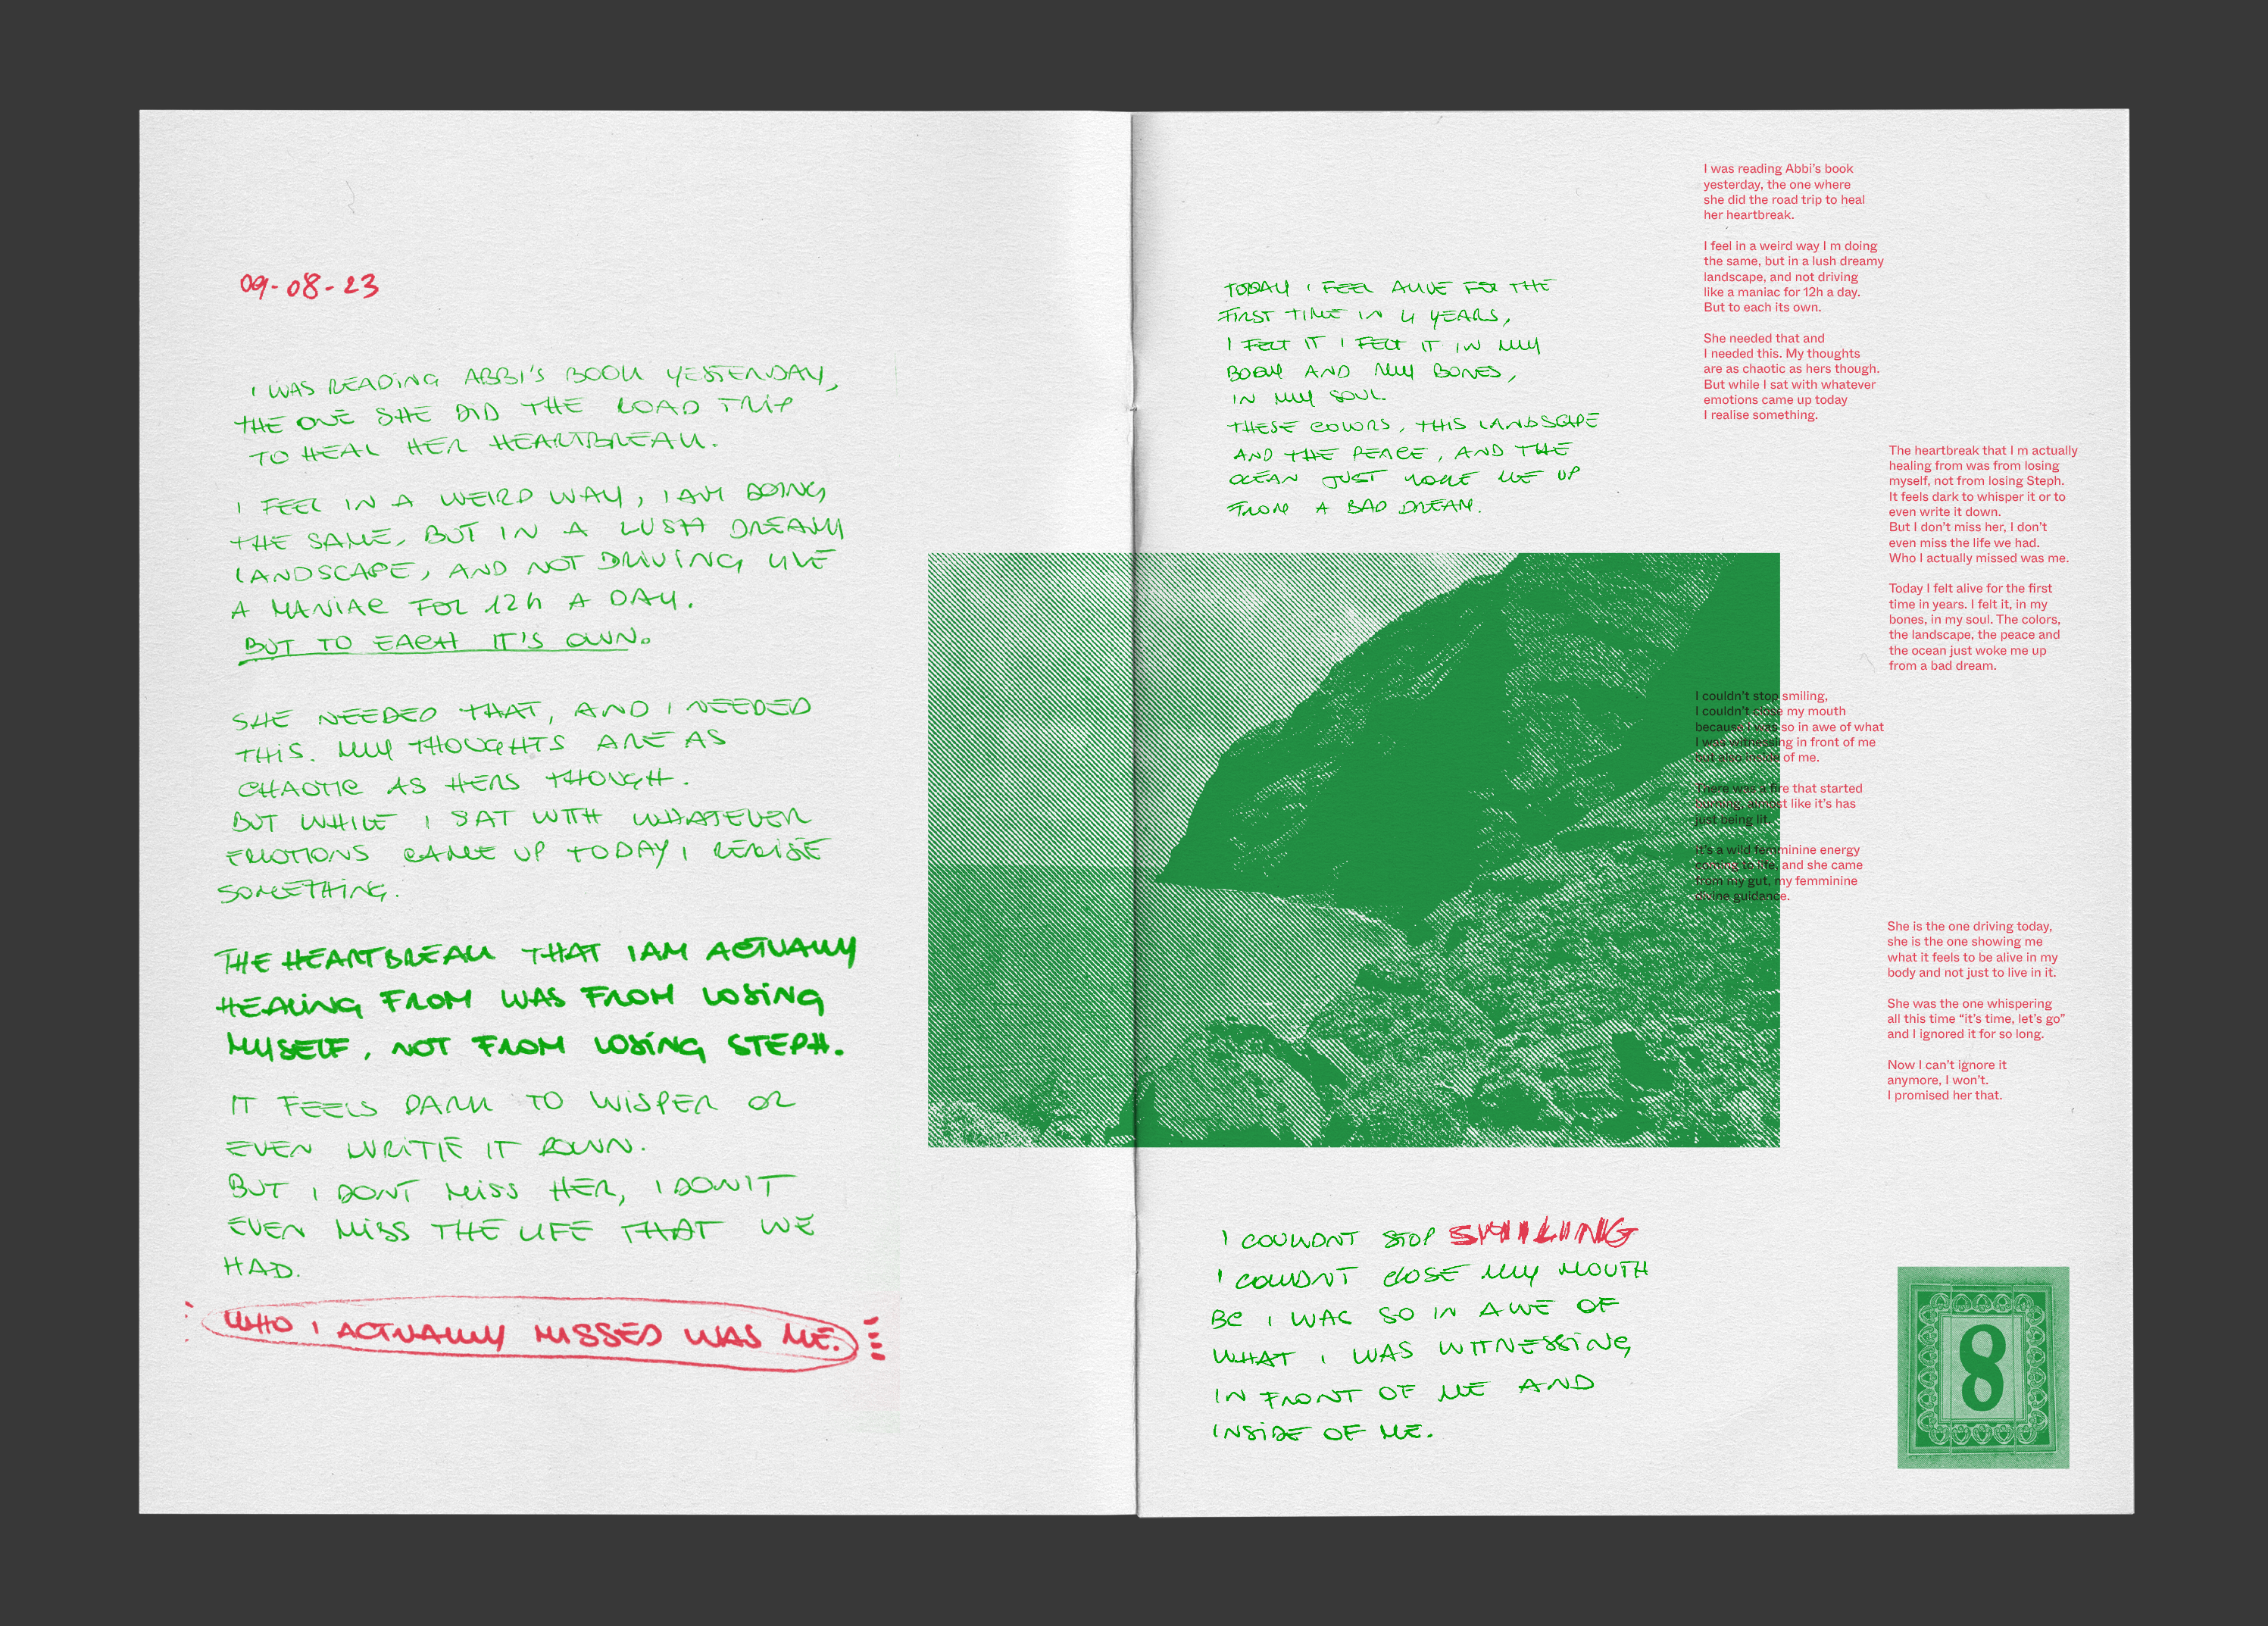 09-08-23
I WAS READING ABBI'S BOOK YESTERDAY,
THE ONE SHE DID THE ROAD TRIP
TO HEAL HER HEARTBREAK.
I FEEL IN A WEIRD WAY, I AM DOING
THE SAME, BUT IN A LUSH DREAMY
LANDSCAPE, AND NOT DRIVING LIKE
A MANIAC FOR 12h A DAY.
BUT TO EACH IT'S OWN.
SHE NEEDED THAT, AND I NEEDED
THIS. MY THOUGHTS ARE AS
CHAOTIC AS HERS THOUGH.
BUT WHILE I SAT WITH WHATEVER
EMOTIONS CAME UP TODAY I REALISE
SOMETHING.
THE HEARTBREAK THAT I AM ACTUALLY
HEALING FROM WAS FROM LOSING
MYSELF, NOT FROM LOSING STEPH.
IT FEELS DARK TO WISPER OR
EVEN WRITIE IT DOWN.
BUT I DONT MISS HER, I DON'T
EVEN MISS THE LIFE THAT WE
HAD.
WHO I ACTUALLY MISSED WAS ME.
TODAY I FEEL ALIVE FOR THE
FIRST TIME IN 4 YEARS,
I FELT IT I FELT IT IN MY
BODY AND MY BONES,
IN MY SOUL.
THESE COLORS, THIS LANDSCAPE
AND THE PEACE, AND THE
OCEAN JUST WOKE ME UP
FROM A BAD DREAM.
I COULDNT STOP SMILING
I COULDNT CLOSE MY MOUTH
BC I WAS SO IN AWE OF
WHAT I WAS WITNESSING
IN FRONT OF ME AND
INSIDE OF ME.
I was reading Abbi's book
yesterday, the one where
she did the road trip to heal
her heartbreak.
I feel in a weird way I m doing
the same, but in a lush dreamy
landscape, and not driving
like a maniac for 12h a day.
But to each its own.
She needed that and
I needed this. My thoughts
are as chaotic as hers though.
But while I sat with whatever
emotions came up today
I realise something.
The heartbreak that I m actually
healing from was from losing
myself, not from losing Steph.
It feels dark to whisper it or to
even write it down.
But I don't miss her, I don't
even miss the life we had.
Who I actually missed was me.
Today I felt alive for the first
time in years. I felt it, in my
bones, in my soul. The colors,
the landscape, the peace and
the ocean just woke me up
from a bad dream.
I couldn't stop smiling,
I couldn't close my mouth
because I was so in awe of what
I was witnessing in front of me
but also inside of me.
There was a fire that started
burning, almost like it's has
just being lit.
It's a wild femminine energy
coming to life, and she came
from my gut, my femminine
divine guidance.
She is the one driving today,
she is the one showing me
what it feels to be alive in my
body and not just to live in it.
She was the one whispering
all this time “it's time, let's go”
and I ignored it for so long.
Now I can't ignore it
anymore, I won't.
I promised her that.
8